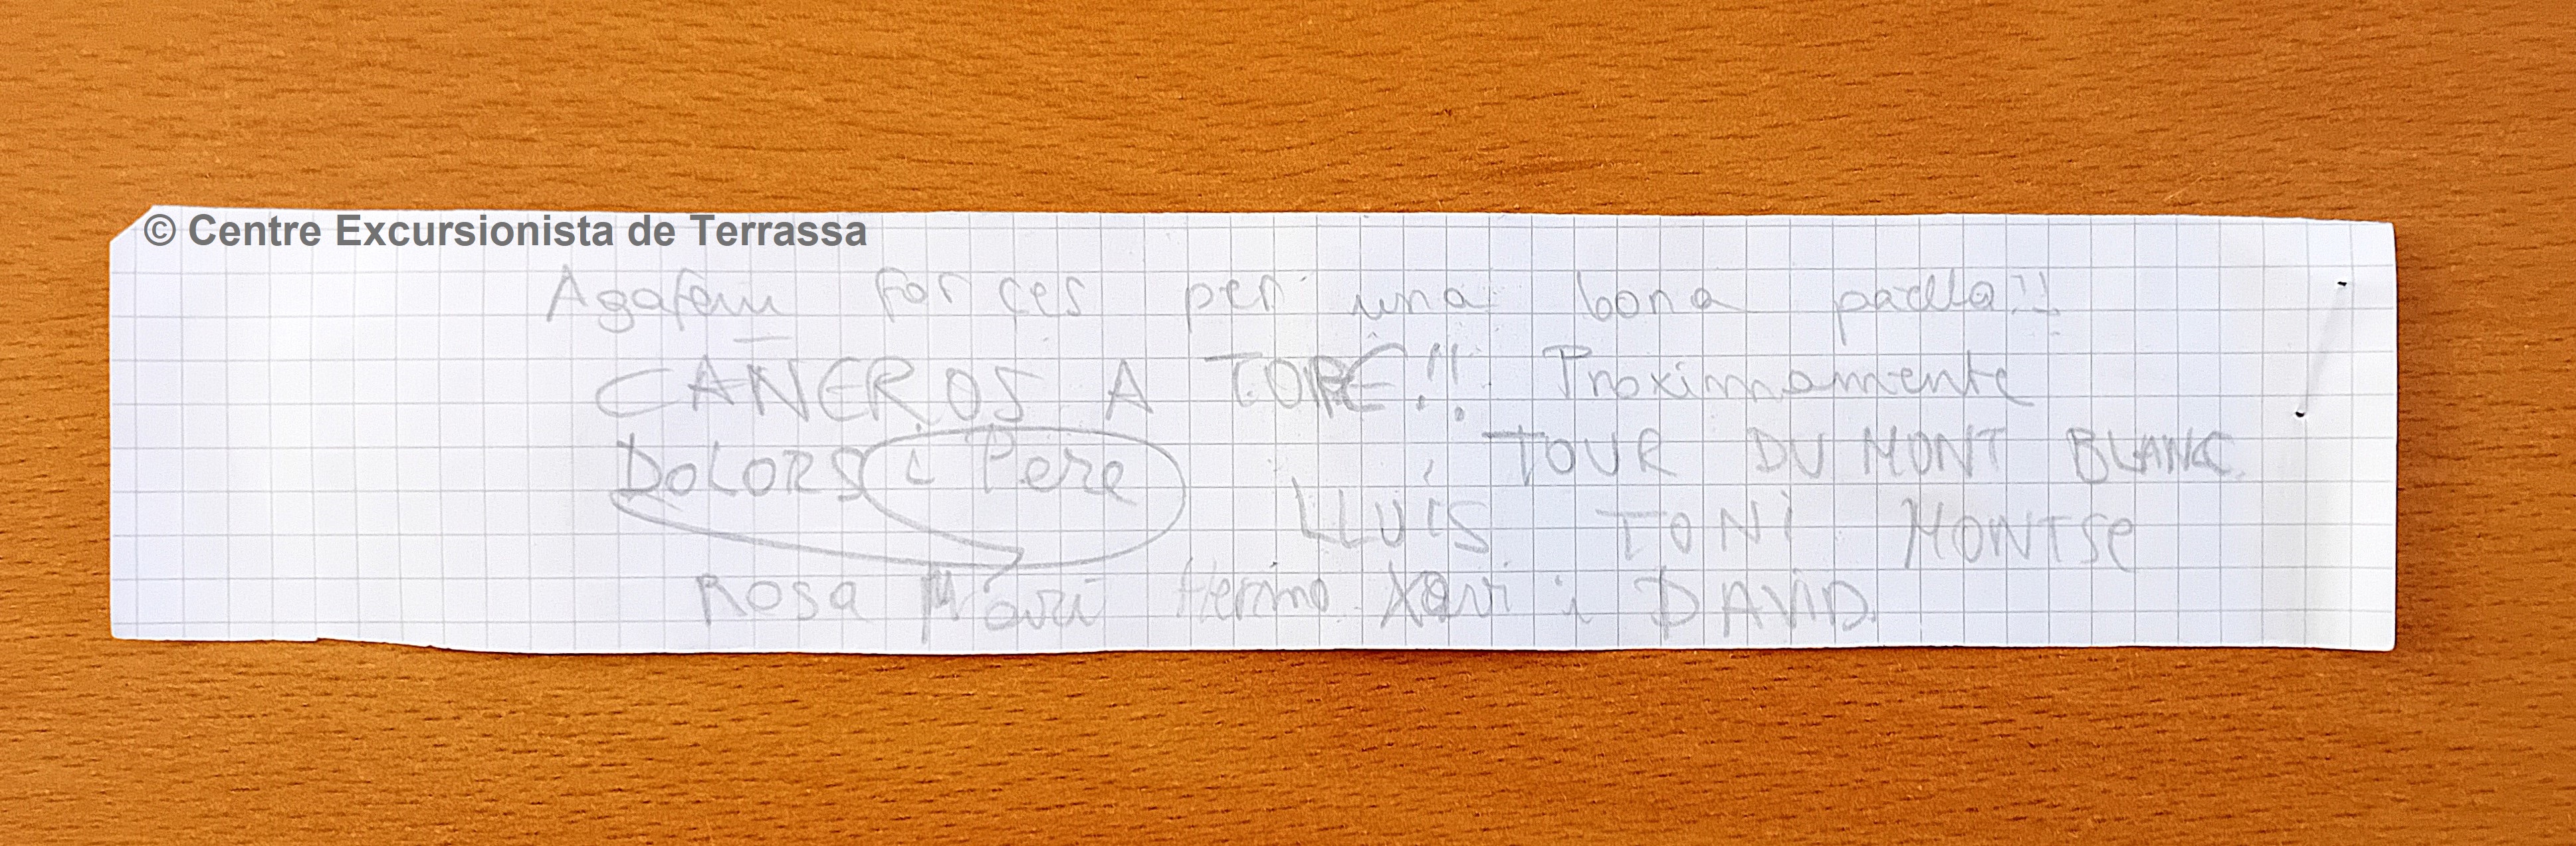 © Centre Excursionista de Terrassa
Agafem forçes per una bona paella!!
CAÑEROS A TOPE!! Proximamente
TOUR DU MONT BLANC
DOLORS i Pere
LLUÍS TONI MONTSe
Rosa Mari Hermo Xavi i DAVID